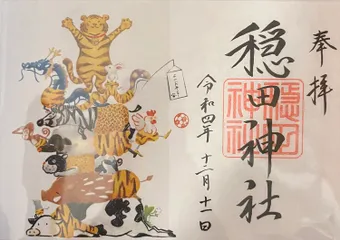 奉拝
穏田神社
令和四年 十二月十一日